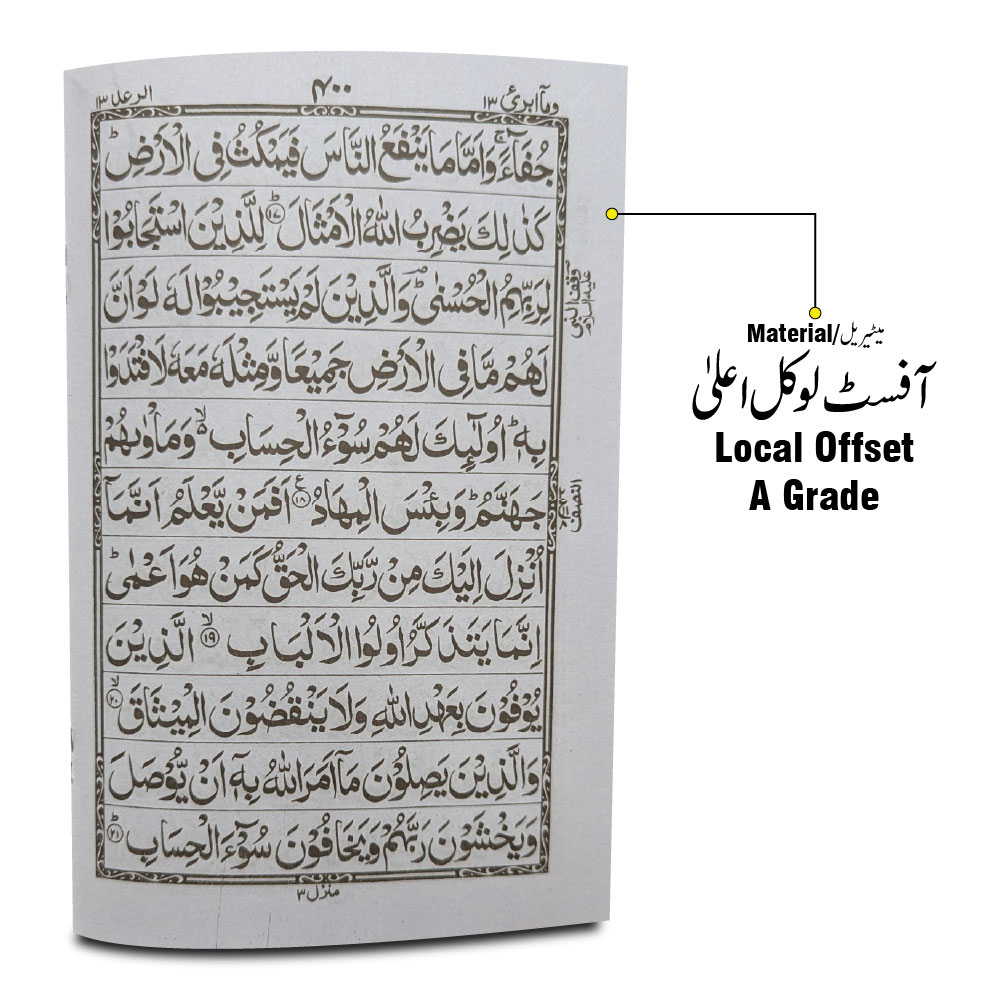 وماۤ ابرئ ١٣
٤٠٠
الرعد ١٣
جُفَآءً ۚ وَاَمَّا مَا يَنْفَعُ النَّاسَ فَيَمْكُثُ فِى الْاَرْضِ ؕ
كَذٰلِكَ يَضْرِبُ اللّٰهُ الْاَمْثَالَ ؕ ﴿١٧﴾ لِلَّذِيْنَ اسْتَجَابُوْا
لِرَبِّهِمُ الْحُسْنٰى ؔؕ وَالَّذِيْنَ لَمْ يَسْتَجِيْبُوْا لَهٗ لَوْ اَنَّ
لَهُمْ مَّا فِى الْاَرْضِ جَمِيْعًا وَّمِثْلَهٗ مَعَهٗ لَافْتَدَوْا
بِهٖ ؕ اُولٰٓئِكَ لَهُمْ سُوْٓءُ الْحِسَابِ ۙ۬ وَمَاْوٰىهُمْ
جَهَنَّمُ ؕ وَبِئْسَ الْمِهَادُ ﴿١٨﴾ ع اَفَمَنْ يَّعْلَمُ اَنَّمَاۤ
اُنْزِلَ اِلَيْكَ مِنْ رَّبِّكَ الْحَقُّ كَمَنْ هُوَ اَعْمٰى ؕ
اِنَّمَا يَتَذَكَّرُ اُولُوا الْاَلْبَابِ ۙ ﴿١٩﴾ الَّذِيْنَ
يُوْفُوْنَ بِعَهْدِ اللّٰهِ وَلَا يَنْقُضُوْنَ الْمِيْثَاقَ ۙ ﴿٢٠﴾
وَالَّذِيْنَ يَصِلُوْنَ مَاۤ اَمَرَ اللّٰهُ بِهٖۤ اَنْ يُّوْصَلَ
وَيَخْشَوْنَ رَبَّهُمْ وَيَخَافُوْنَ سُوْٓءَ الْحِسَابِ ؕ ﴿٢١﴾
منزل ٣
وقف النبی
النصف
Material/میٹیریل
آفسٹ لوکل اعلیٰ
Local Offset
A Grade